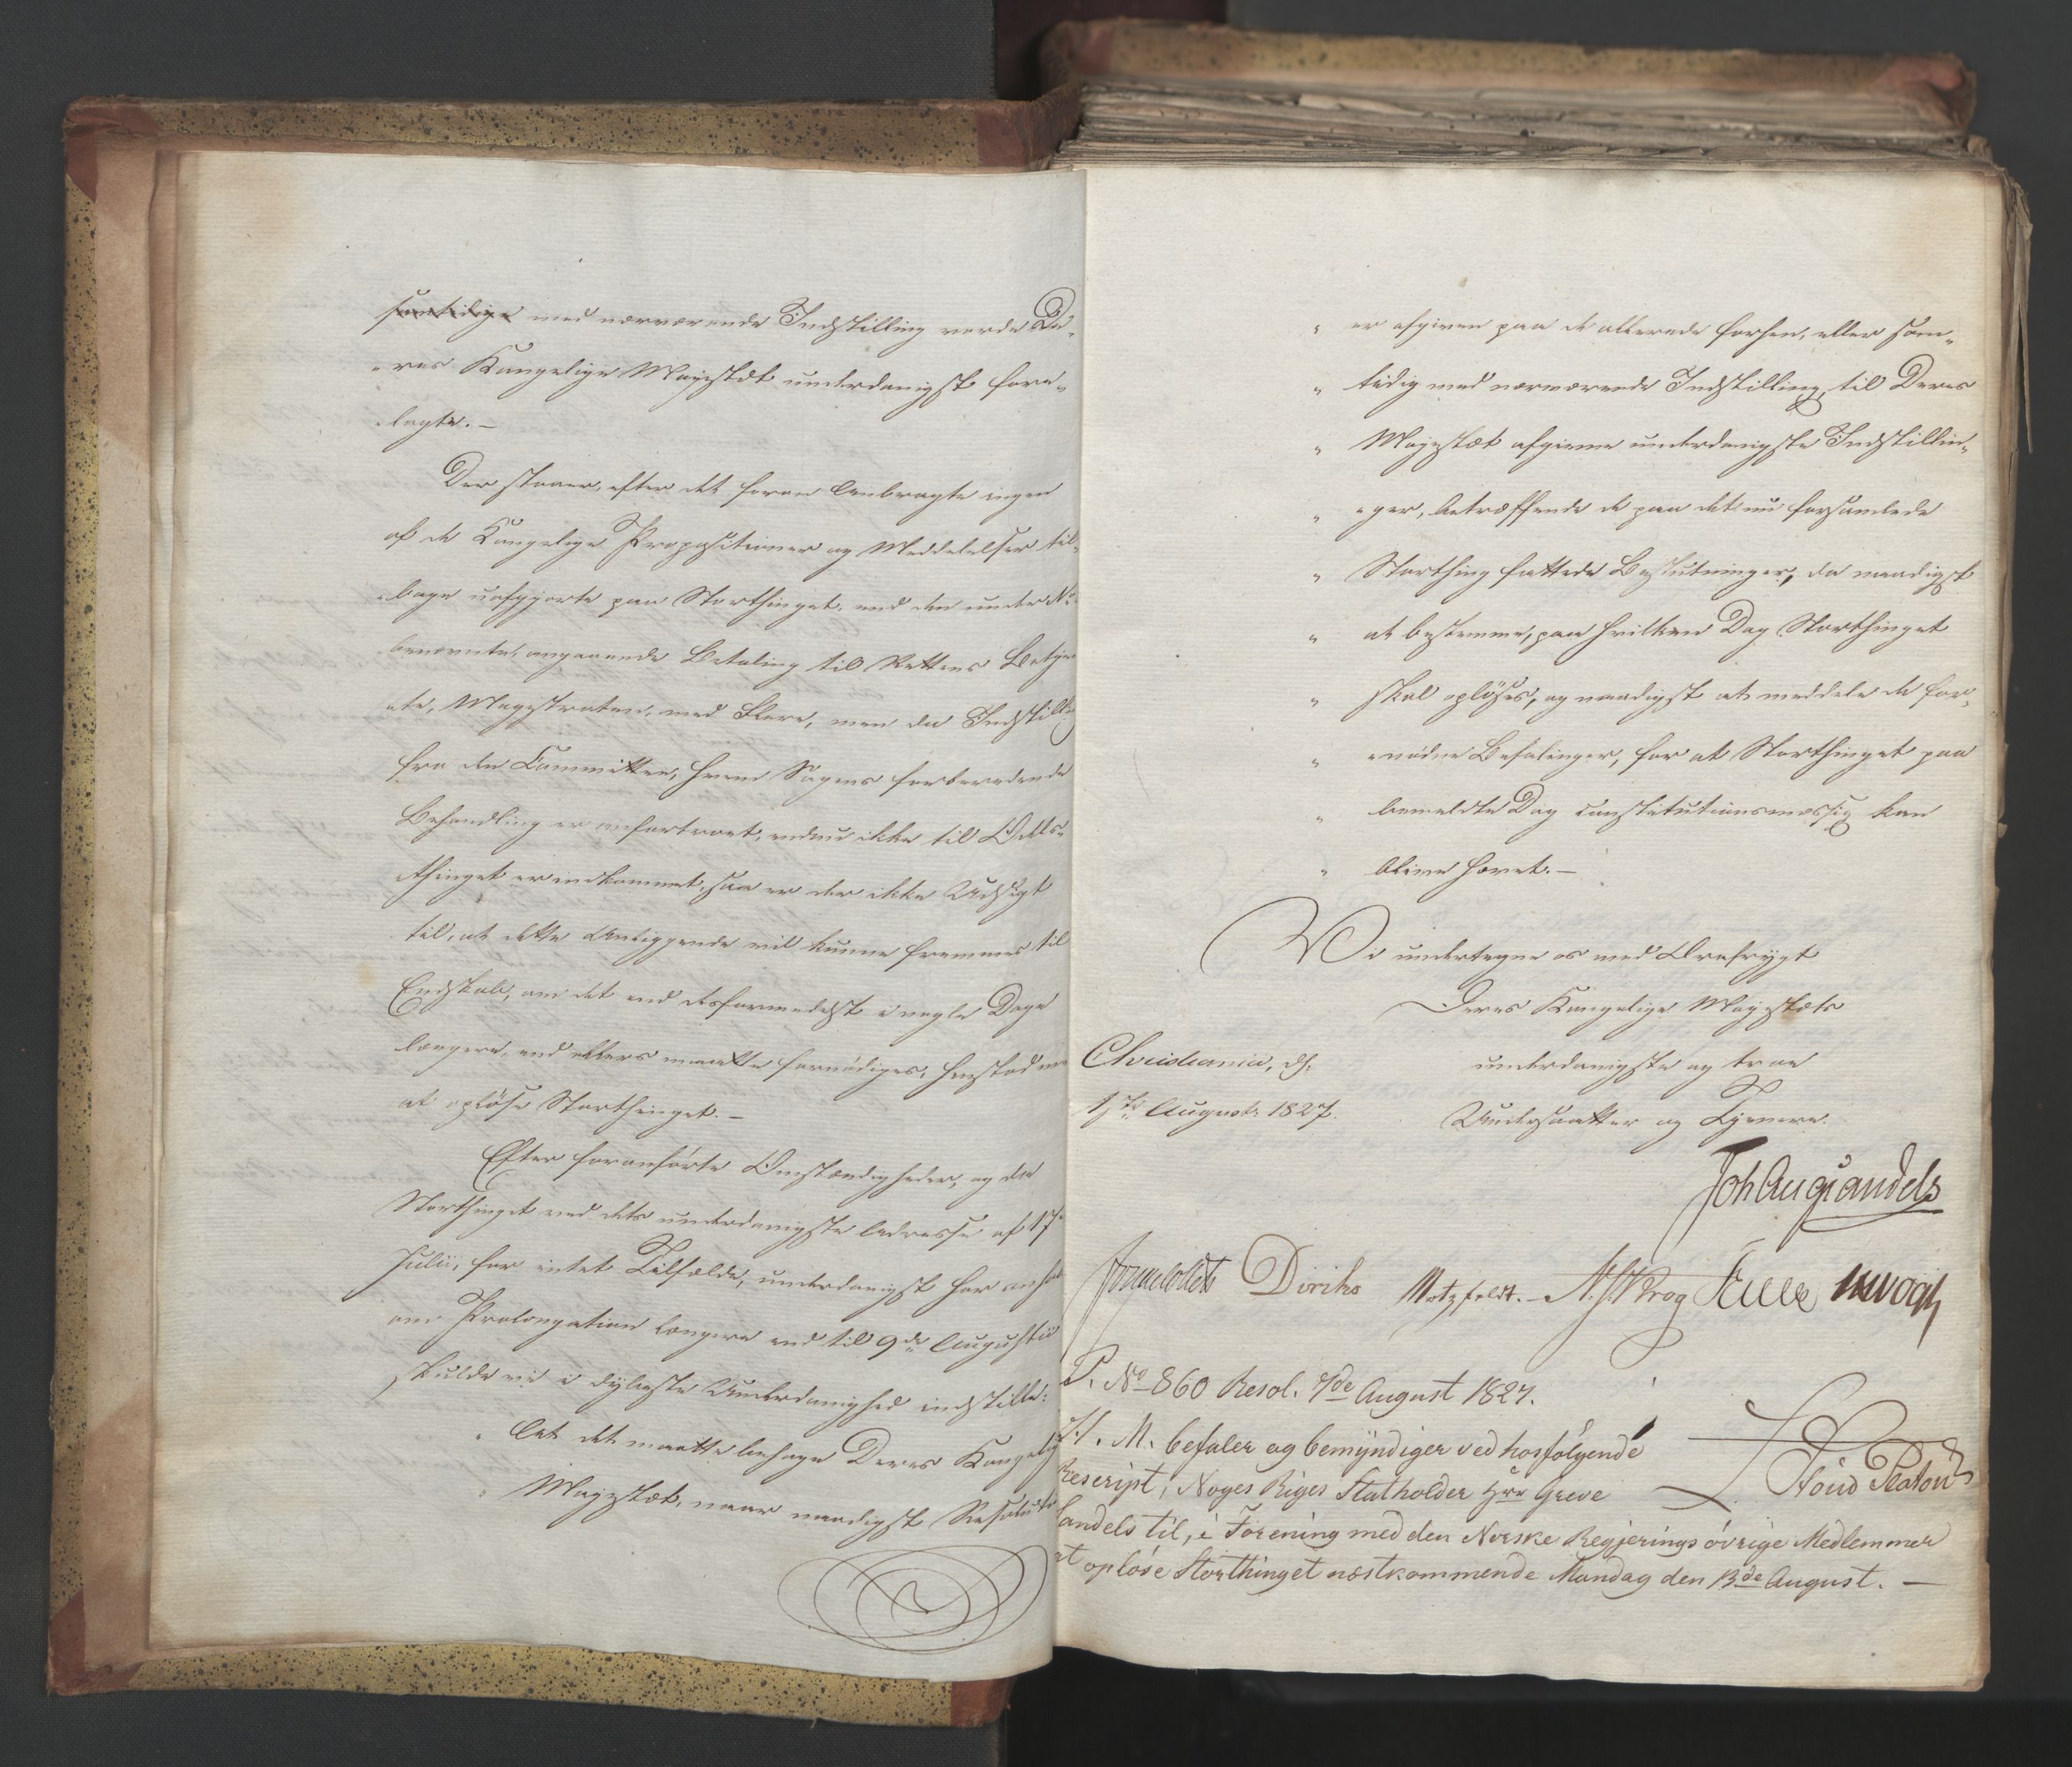 samtidige med nærværende Indstilling vorde De-
res Kongelige Majestæt underdanigst fore-
lagte. -
Der staaer, efter det foran Anbragte ingen
af de Kongelige Propositioner og Meddelelser til-
bage uafgjorte paa Storthinget, end den under No
benævnte, angaaende Betaling til Rettens Betjen
te, Magistraten, med Flere, men da Indstilling
fra den Committee, hvem Sagens forberedende
Behandling er anfortroet, endnu ikke til Odels-
thinget er indkommet, saa er der ikke Udsigt
til, at dette Anliggende vil kunne fremmes til
Endskab, om det end desformedelst i nogle Dage
længere, end ellers maatte fornödiges, henstod med
at oplöse Storthinget. -
Efter foranförte Omstændigheder, og da
Storthinget ved dets underdanigste Adresse af 17
Julii, for intet Tilfælde, underdanigst har anholdt
om Prolongation længere end til 9de Augusti
skulde vi i dybeste Underdanighed indstille:
" At det maatte behage Deres Kongelige
" Majestæt, naar naadigst Resolution
" er afgiven paa de allerede forhen, eller sam-
" tidig med nærværende Indstilling, til Deres
" Majestæt afgivne underdanigste Indstillin-
" ger, betræffende de paa det nu forsamlede
" Storthing fattede Beslutninger, da naadigst
" at bestemme, paa hvilken Dag Storthinget
" skal oplöses, og naadigst at meddele de for-
" nødne Befalinger, for at Storthinget paa
" bemeldte Dag constitutionsmæssig kan
" blive hævet. -
Vi undertegne os med Ærefrygt
Deres Kongelige Majestæts
Christiania, d.
underdanigste og troe
1ste August 1827.
Undersaatter og Tjenere.
Joh Aug Sandels
J Collett Diriks Motzfeldt. - Krog Treschow
P. No 860 Resol. 7de August 1827.
H. M. befaler og bemÿndiger ved hosfølgende
Rescript, Noges Riges Statholder Hrr Greve
Sandels til, i Forening med den Norske Regjerings øvrige Medlemmer
at opløse Storthinget næstkommende Mandag den 13de August. -